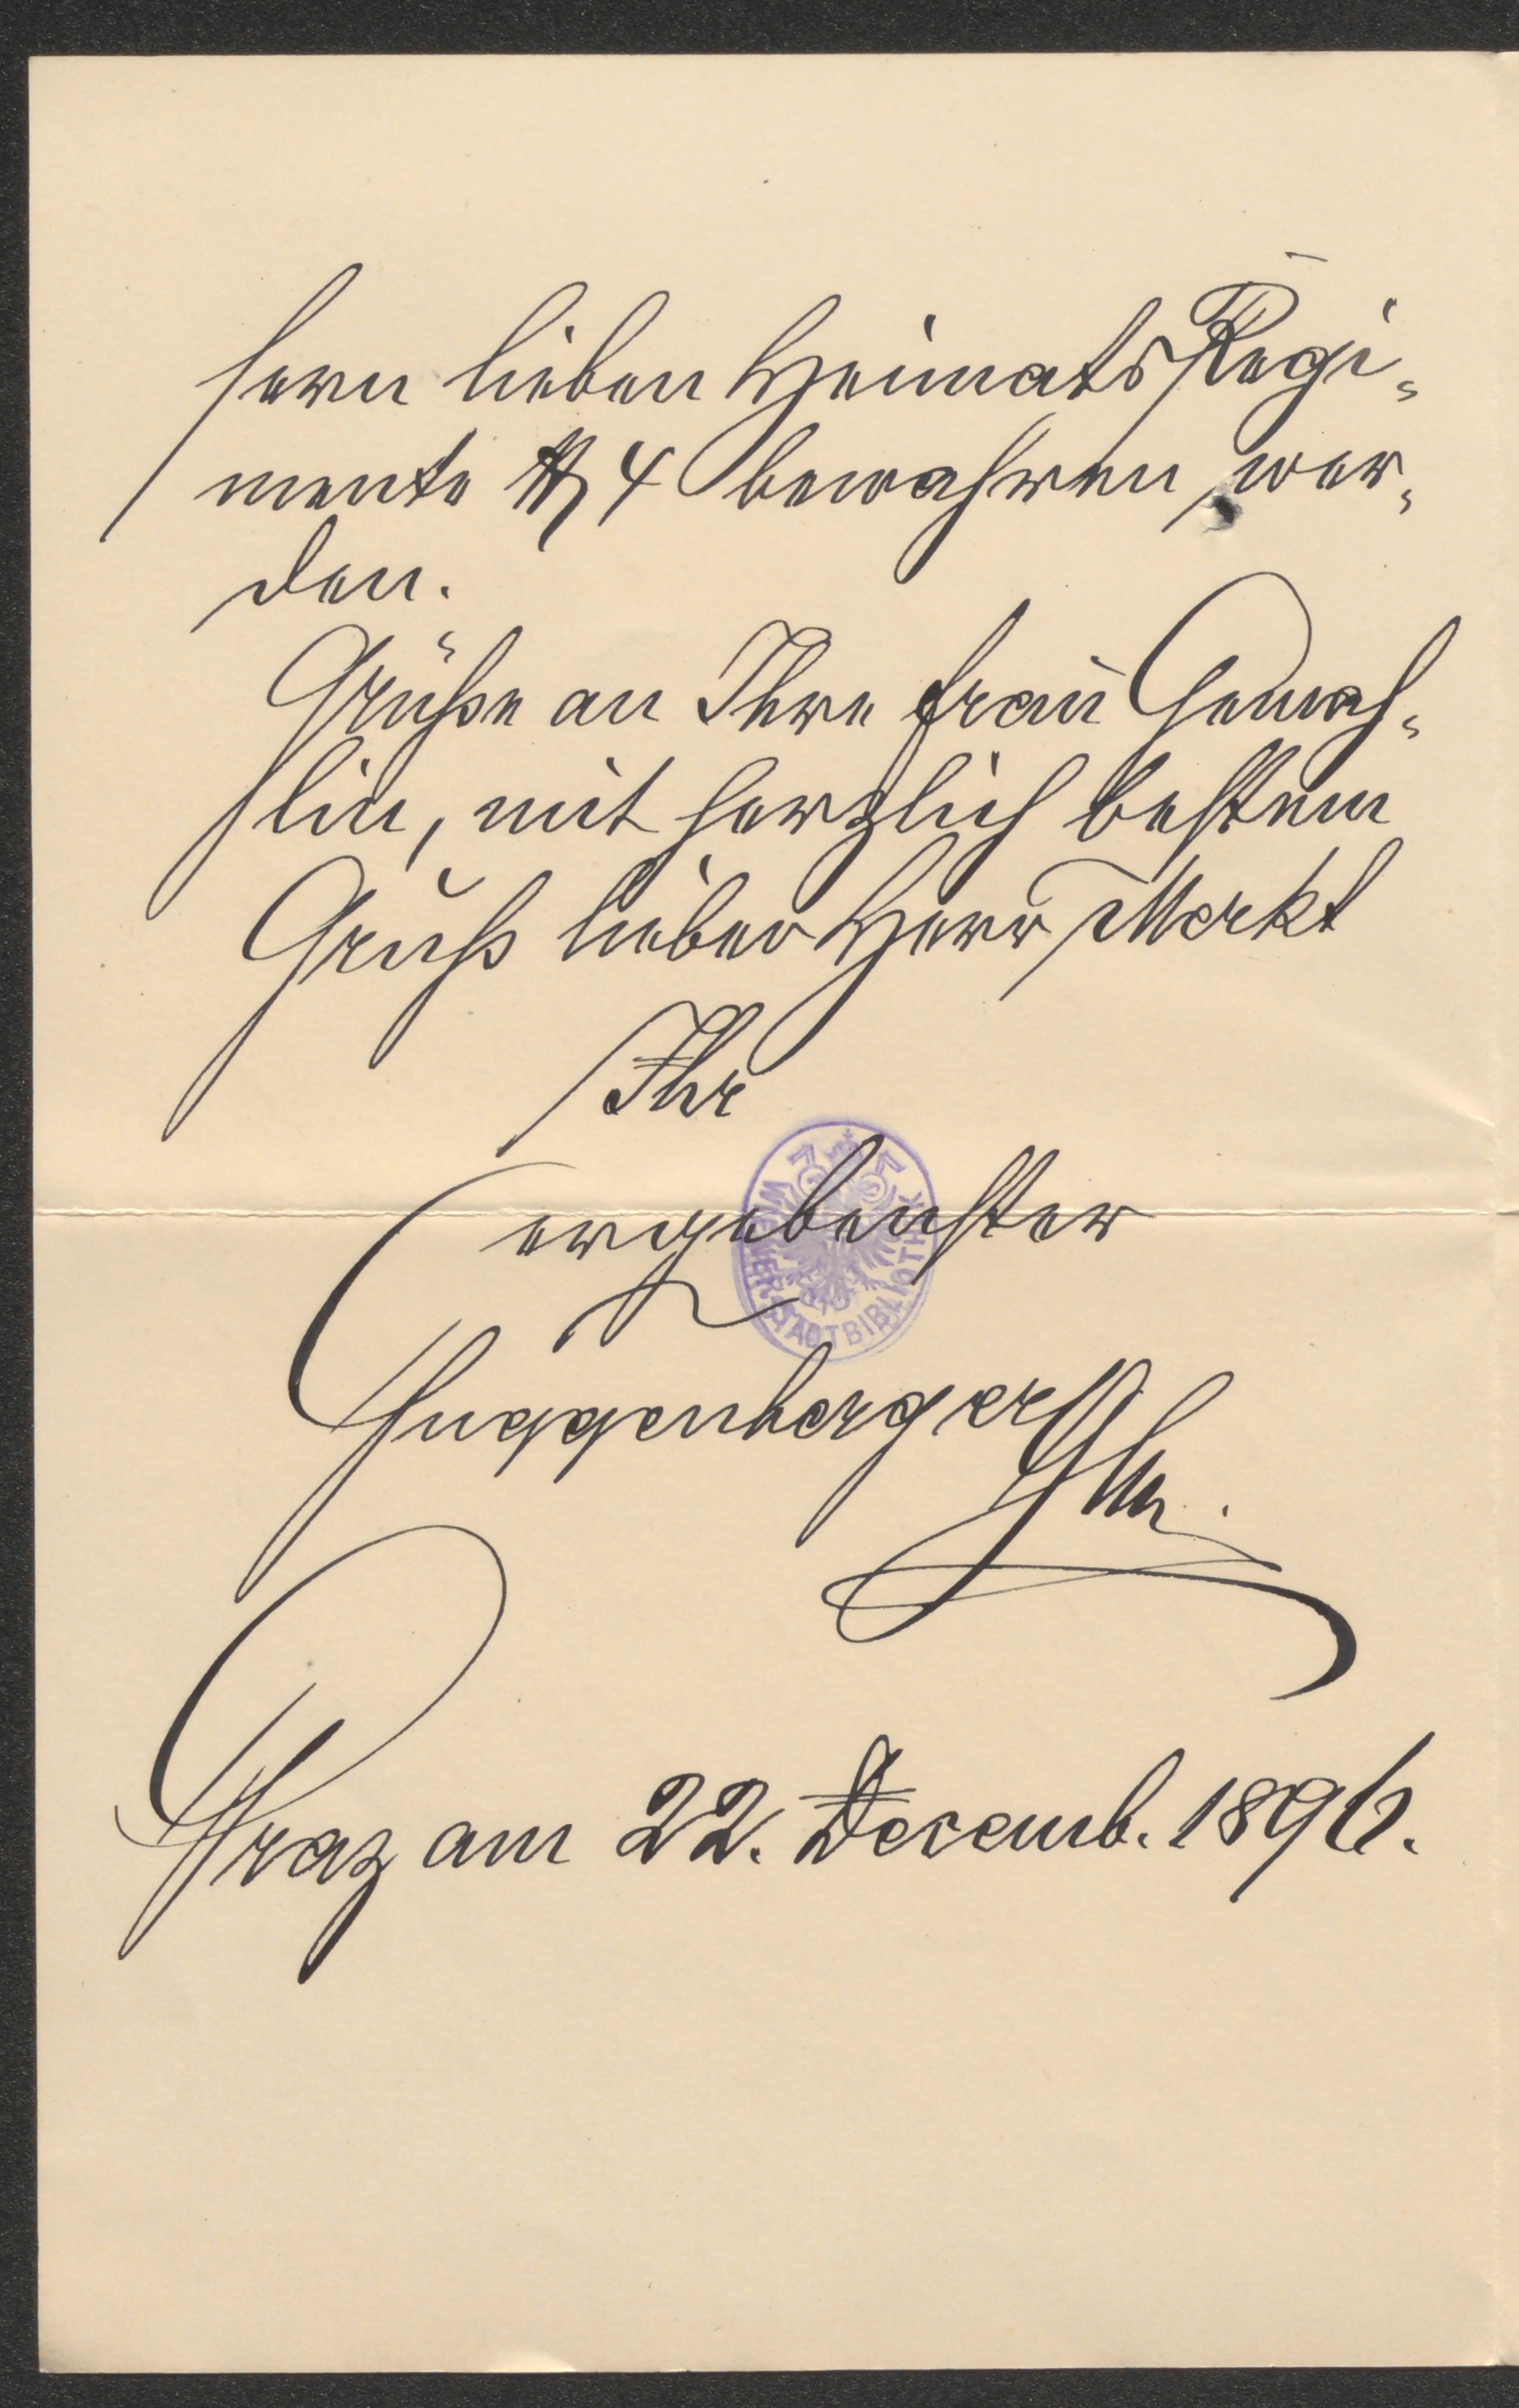 serm lieben Heimats Regi-
mente № 4 bewahren wer-
den.
Grüße an Ihre Frau Gemah-
lin, mit herzlich bestem
Gruß lieber Herr Merkt
Ihr
ergebenster
Guggenberger
Graz am 22. Decemb. 1896.
WIENER STADTBIBLIOTHEK